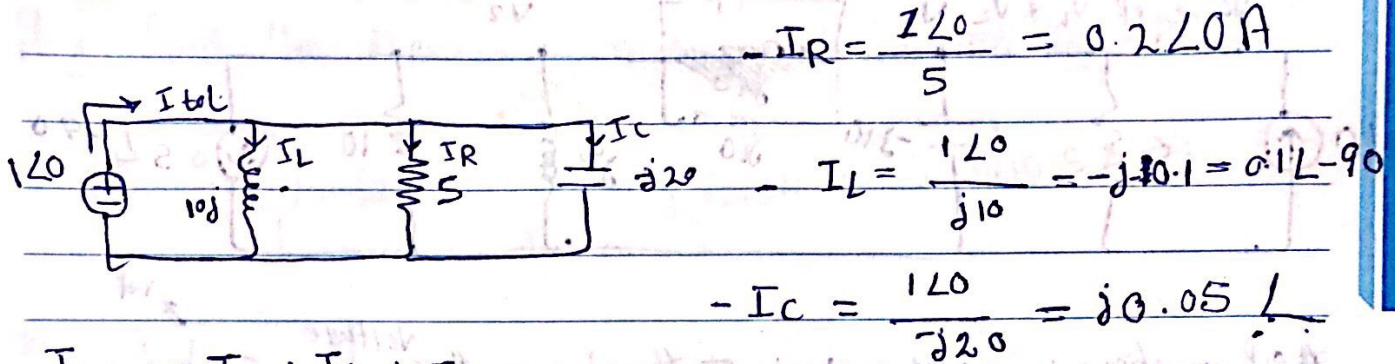 - IR = 1∠0 / 5 = 0.2∠0 A
I tot
1∠0
IL
10j
IR
5
IC
-j20
- IL = 1∠0 / j10 = -j0.1 = 0.1∠-90
- IC = 1∠0 / -j20 = j0.05 ∠